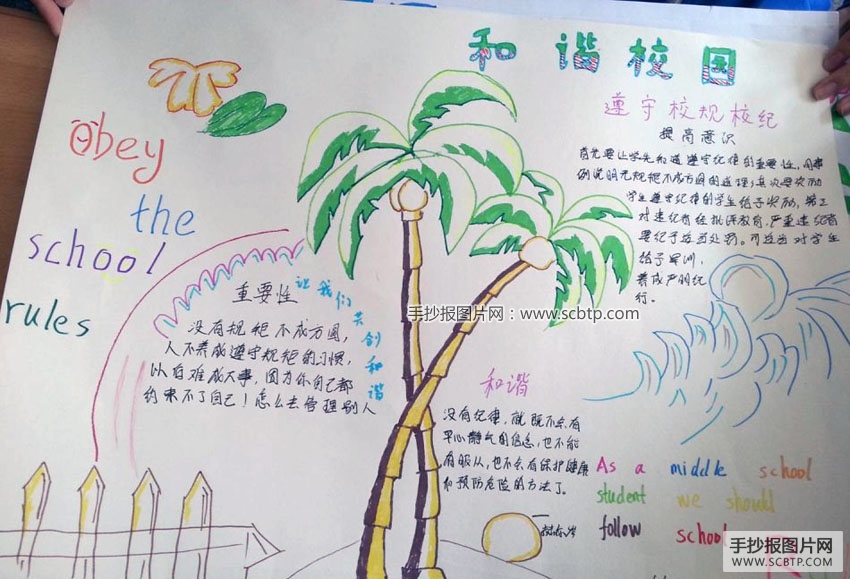 和谐校园
遵守校规校纪
提高意识
首先要让学生知道遵守纪律的重要性,同时
例说明无规矩不成方圆的道理;其次要奖励
学生遵守纪律的学生给予奖励,第三
对违纪者给批评教育,严重违纪者
要纪予适当处罚。可适当对学生
给予军训,
养成严明纪
行。
Obey
the
school
rules
重要性
让我们共创和谐
没有规矩不成方圆,
人不养成遵守规矩的习惯,
以后难成大事,因为你自己都
约束不了自己!怎么去管理别人
手抄报图片网:www.scbtp.com
和谐
没有纪律,就既不会有
平心静气的信念,也不能
有服从,也不会有保护健康
和预防危险的方法了。
As a middle school
student we should
follow school
手抄报图片网
WWW.SCBTP.COM